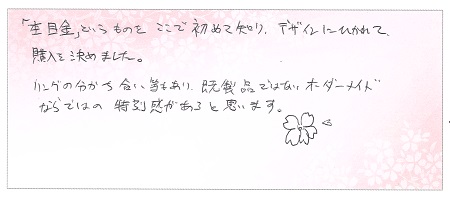 「杢目金」というものを ここで 初めて知り、デザインにひかれて、
購入を決めました。
リングの分かち合い等もあり、既製品ではないオーダーメイド
ならではの 特別感があると思います。